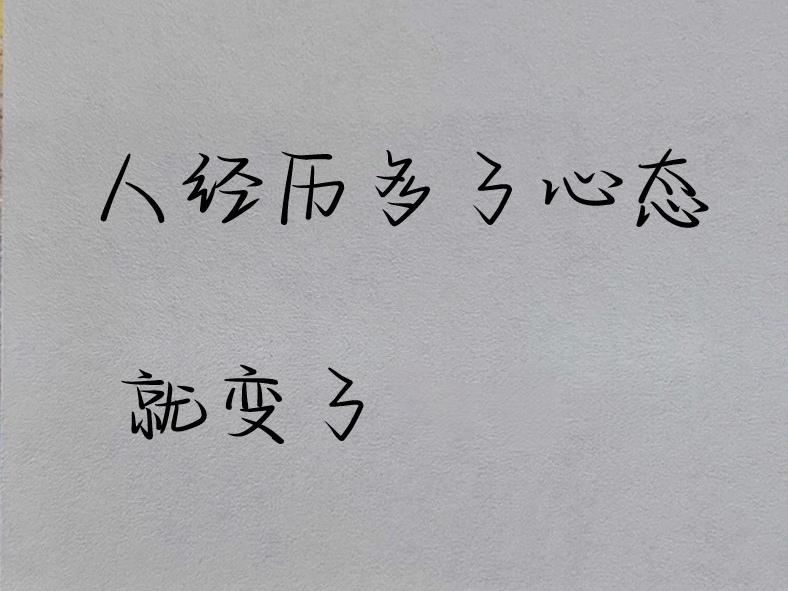 人经历多了心态
就变了